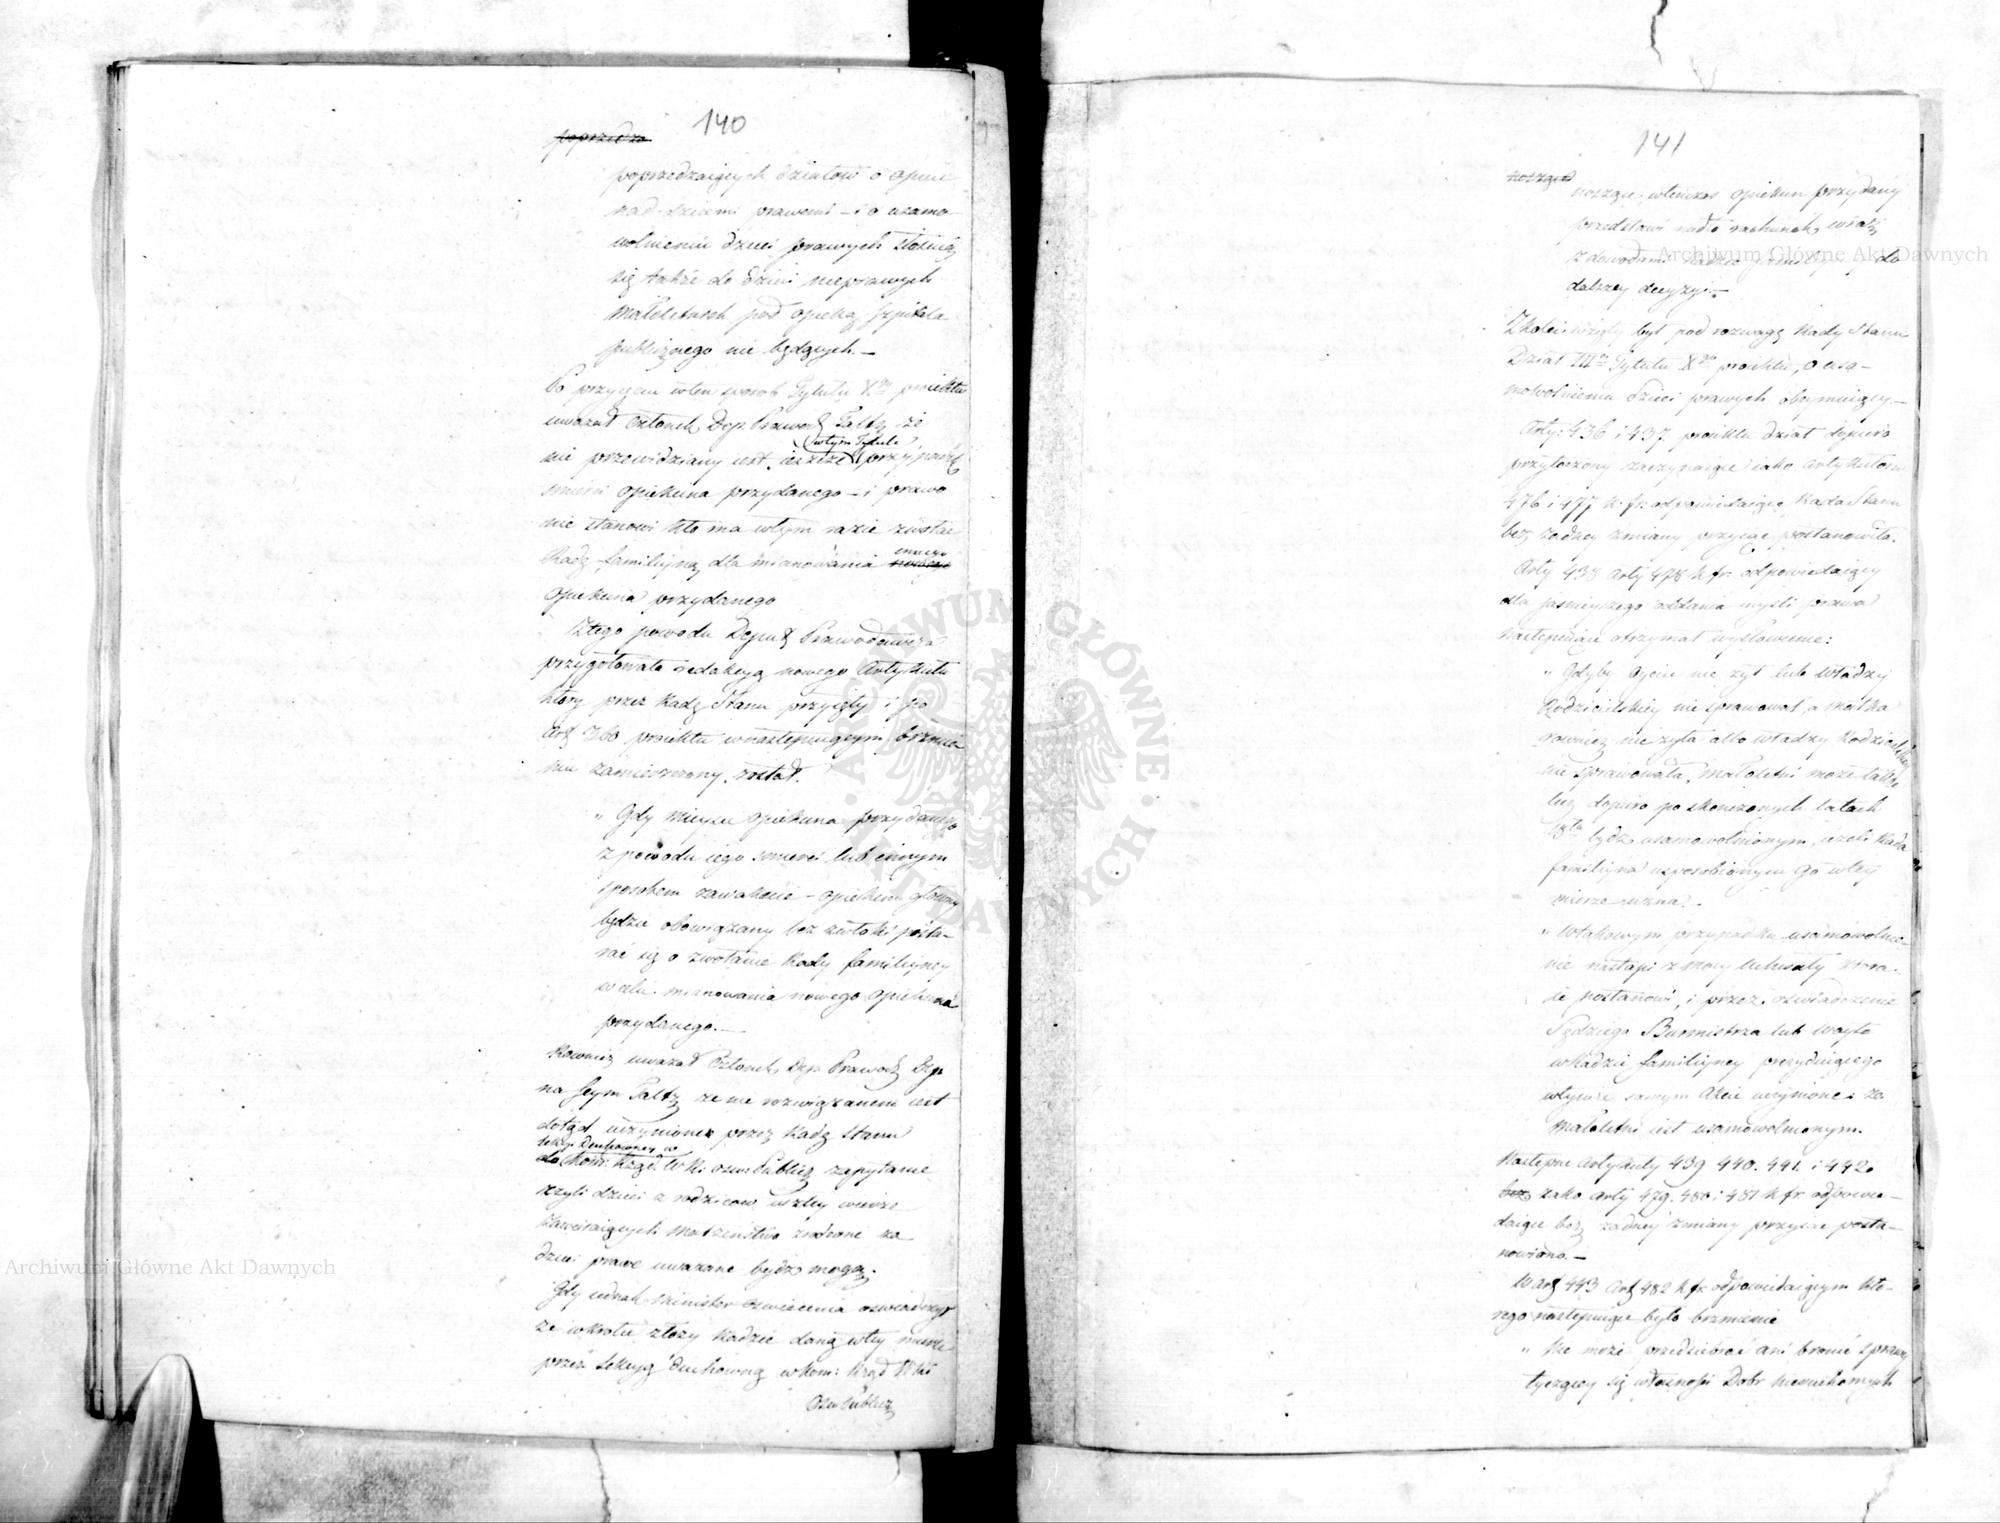 140
poprzedza
poprzedzaiących działów o opiece
nad dziećmi prawemi – i o usamo-
wolnieniu dzieci prawych stosuią
się także do dzieci nieprawych
małoletnich pod opieką szpitala
publicznego nie będących –
Po przyięciu w ten sposób Tytułu X projektu
uważał Członek Dep. Prawod. że
nie przewidziany iest ieszcze w tym Tytule przypadek
śmierci opiekuna przydanego – i prawo
nie stanowi kto ma w tym razie zwołać
Radę familijną dla mianowania nowego innego
opiekuna przydanego
Z tego powodu Deput Prawodawcza
przygotowała redakcyą nowego Artykułu
który przez Radę Stanu przyięty i po
Art 360 proiektu w następuiącym brzmie
niu zamieszczony został.
„ Gdy mieysce opiekuna przydanego
z powodu iego śmierci lub innym
sposobem zawakuie – opiekun główny
będzie obowiązany bez zwłoki posta-
rać się o zwołanie Rady familijney
w celu mianowania nowego opiekuna
przydanego. –
Również uważał Członek Dep. Prawod. Dep.
na Seym że nie rozwiązanem iest
dotąd uczynione przez Radę Stanu
Sekcyi Duchowney w
do Kom: Rząd. W. R. Ośw: Public zapytanie
czyli dzieci z rodziców w złey wierze
zawieraiących małżeństwo zrodzone za
dzieci prawe uważane bydź mogą.
Gdy iednak Minister Oświecenia oświadczył
że wkrótce złoży Radzie daną w tey mierze
przez Sekcyą Duchowną w Kom: Rząd W
Ośw Public
141
noszące
noszące. wtenczas opiekun przydany
przedstawi nadto rachunek wraz
z dowodami Radzie familijney do
dalszey decyzyi. –
Z kolei wzięty był pod rozwagę Rady Stanu
Dział III Tytułu X proiektu, o usa-
mowolnieniu dzieci prawych obeymuiący –
Arty: 436 i 437. proiektu dział dopiero
przytoczony zaczynaiące iako Artykułom
476 i 477 K. fr. odpowiedaiące Rada Stanu
bez żadney zmiany przyiąć postanowiła.
Arty 438 Arty 478 K fr. odpowiedaiący
dla jaśnieyszego oddania myśli prawa
następuiące otrzymał wysłowienie:
„ Gdyby Oyciec nie żył lub władzy
Rodzicielskiey nie sprawował, a Matka
również nie żyła albo władzy Rodzicielskiey
nie sprawowała, Małoletni może także
lecz dopiero po skończonych latach
18tu bydź usamowolnionym, ieżeli Rada
familijna usposobionym go w tey
mierze uzna. –
„ W takowym przypadku usamowolnie-
nie nastąpi z mocy uchwały która
ie postanowi, i przez oświadczenie
Sędziego Burmistrza lub Woyta
w Radzie familijney prezyduiącego
w tymże samym Akcie uczynione: że
Małoletni iest usamowolnionym.
Następne Artykuły 439 440. 441. i 442.
bez iako Arty 479. 480 i 481 K fr. odpowie-
daiące bez żadney zmiany przyiąć posta-
nowiono. –
W art 443 Art 482 K fr. odpowiedaiącym któ-
rego następuiące było brzmienie
„ Nie może przedsiębrać ani bronić sprawy
tyczącey się własności Dóbr Nieruchomych